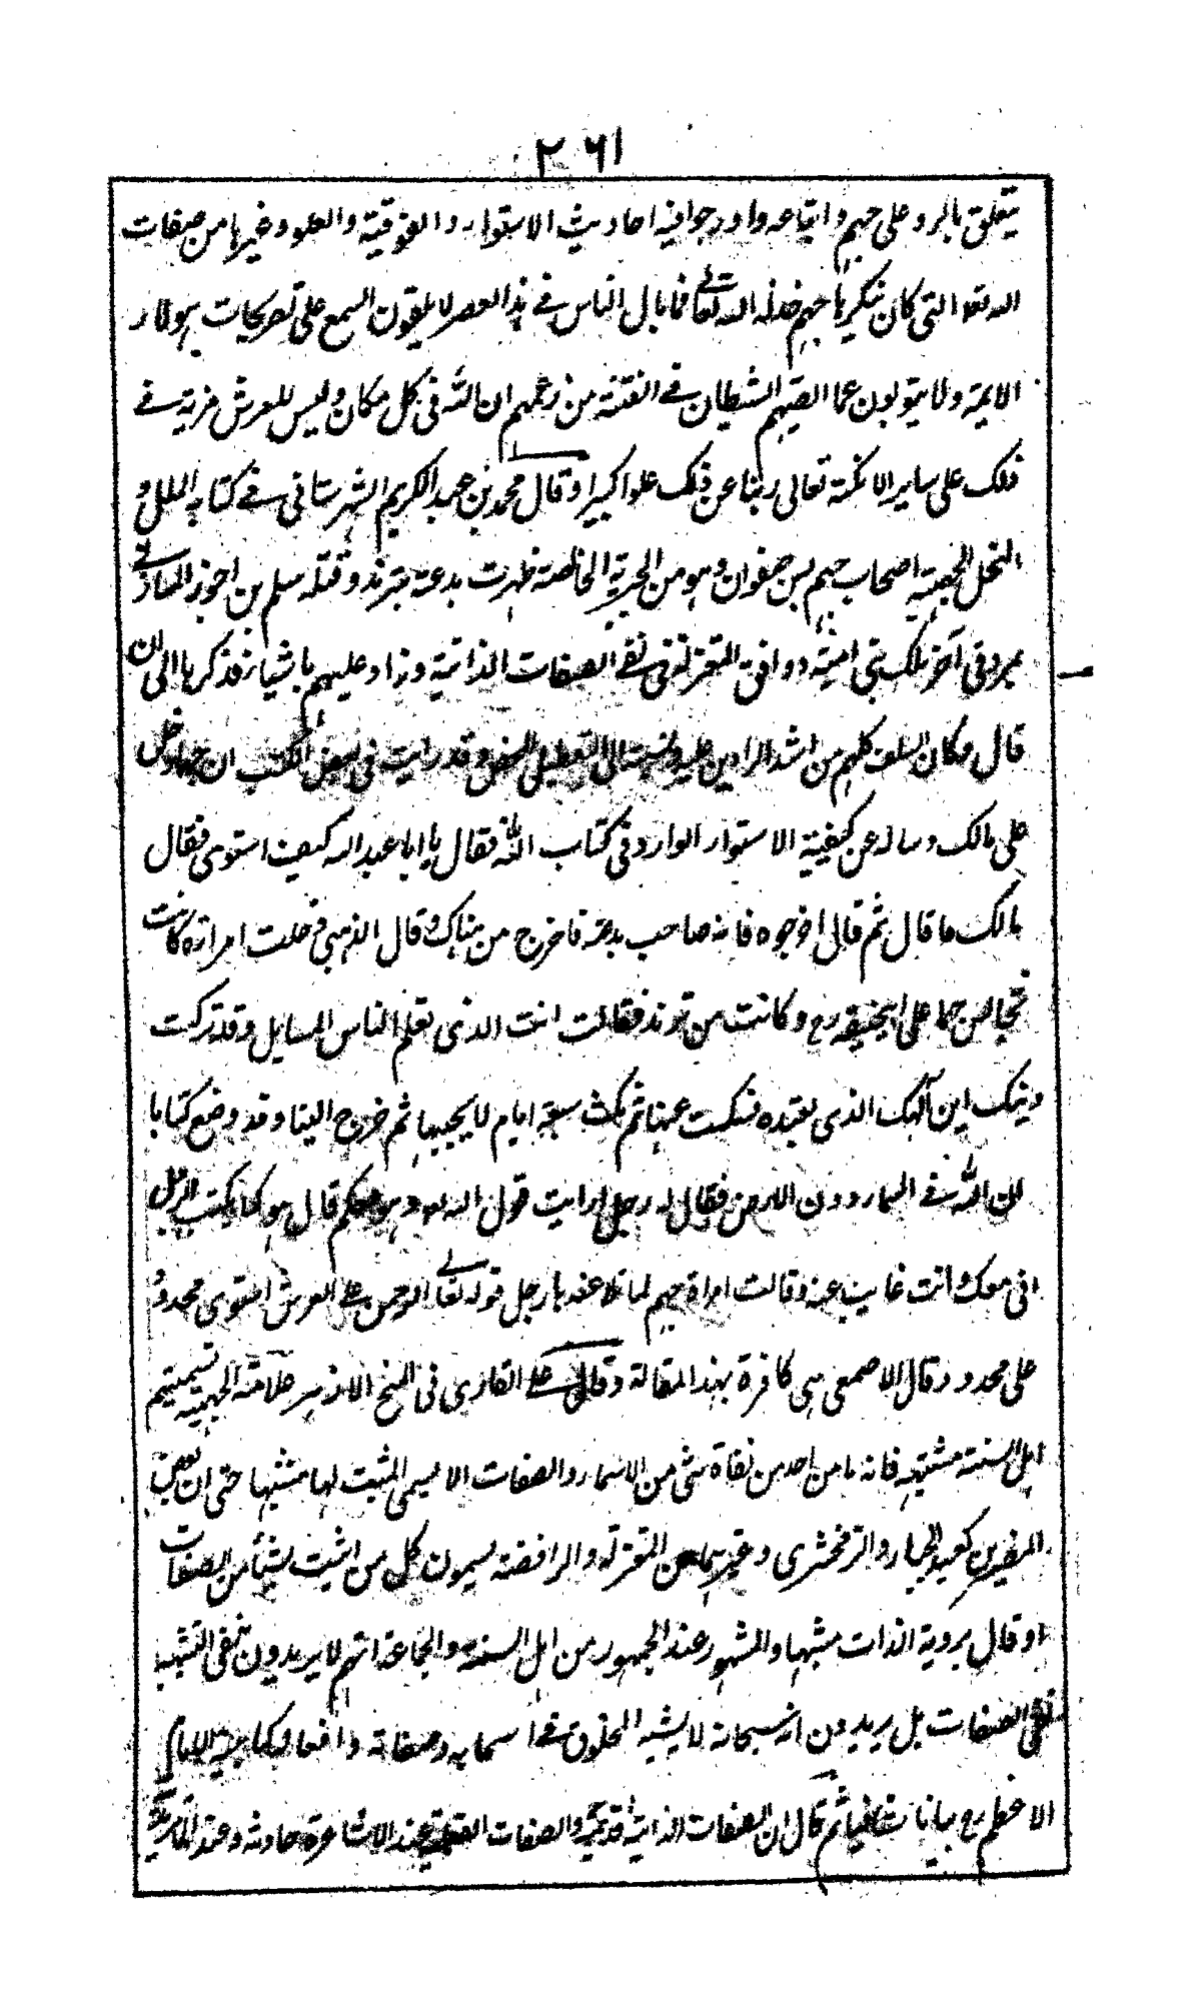 ٢٦١
يتعلق بالرد على جهم واتباعه واوردوا فيه احاديث الاستواء والفوقية والعلو وغيرها من صفات
الله تعه التى كان ينكرها جهم خذله الله تعالى فما بال الناس في هذا العصر لا يلقون السمع على تصريحات هولاء
الايمة ولا يتوبون عما القيهم الشيطان في الفتنة من زعمهم ان الله فى كل مكان وليس للعرش مزية في
ذلك على ساير الامكنة تعالى ربنا عن ذلك علوا كبيرا وقال محمد بن عبد الكريم الشهرستانى في كتابه الملل و
النحل الجهمية اصحاب جهم بن صفوان وهو من الجبرية الخالصة ظهرت بدعته بترمذ وقتله سلم بن احوز المازنى
بمرو فى آخر ملك بنى امية ووافق المعتزلة فى نفى الصفات الذاتية وزاد عليهم باشياء فذكرها الى ان
قال وكان السلف كلهم من اشد الرادين عليه ونسبته الى التعطيل المحض وقد رايت فى بعض الكتب ان جهما دخل
على مالك وساله عن كيفية الاستواء الوارد فى كتاب الله فقال يا ابا عبد الله كيف استوى فقال
مالك ما قال ثم قال اخرجوه فانه صاحب بدعة فاخرج من هناك وقال الذهبى دخلت امراة كانت
تجالس جهما على ابيحنيفة رح وكانت من ترمذ فقالت انت الذى تعلم الناس المسايل وقد تركت
دينك اين آلهك الذى تعبده فسكت عنها ثم مكث سبعة ايام لا يجيبها ثم خرج الينا وقد وضع كتابا
ان الله في السماء دون الارض فقال له رجل ارايت قول الله تعه وهو معكم قال هو كما يكتب الرجل
انى معك وانت غايب عنه وقالت امراة جهم لما تلا عنده رجل قوله تعالى الرحمن على العرش استوى محدود
على محدود وقال الاصمعى هى كافرة بهذه المقالة وقال على القارى فى المنح الازهر علامة الجهمية تسميتهم
اهل السنة مشبهة فانه ما من احد من نفاة شى من الاسماء والصفات الا يسمى المثبت لها مشبها حتى ان بعض
المفسرين كعبد الجبار والزمخشرى وغيرهما من المعتزلة والرافضة يسمون كل من اثبت شيئا من الصفات
او قال بروية الذات مشبها والمشهور عند الجمهور من اهل السنة والجماعة انهم لا يريدون بنفى التشبيه
نفى الصفات بل يريدون انه سبحانه لا يشبه المخلوق في اسمايه وصفاته وافعاله كما بينه الامام
الاعظم رح بيانا شافيا ثم قال ان الصفات الذاتية قديمة والصفات الفعلية عند الاشاعرة حادثة وعند الماتريدية